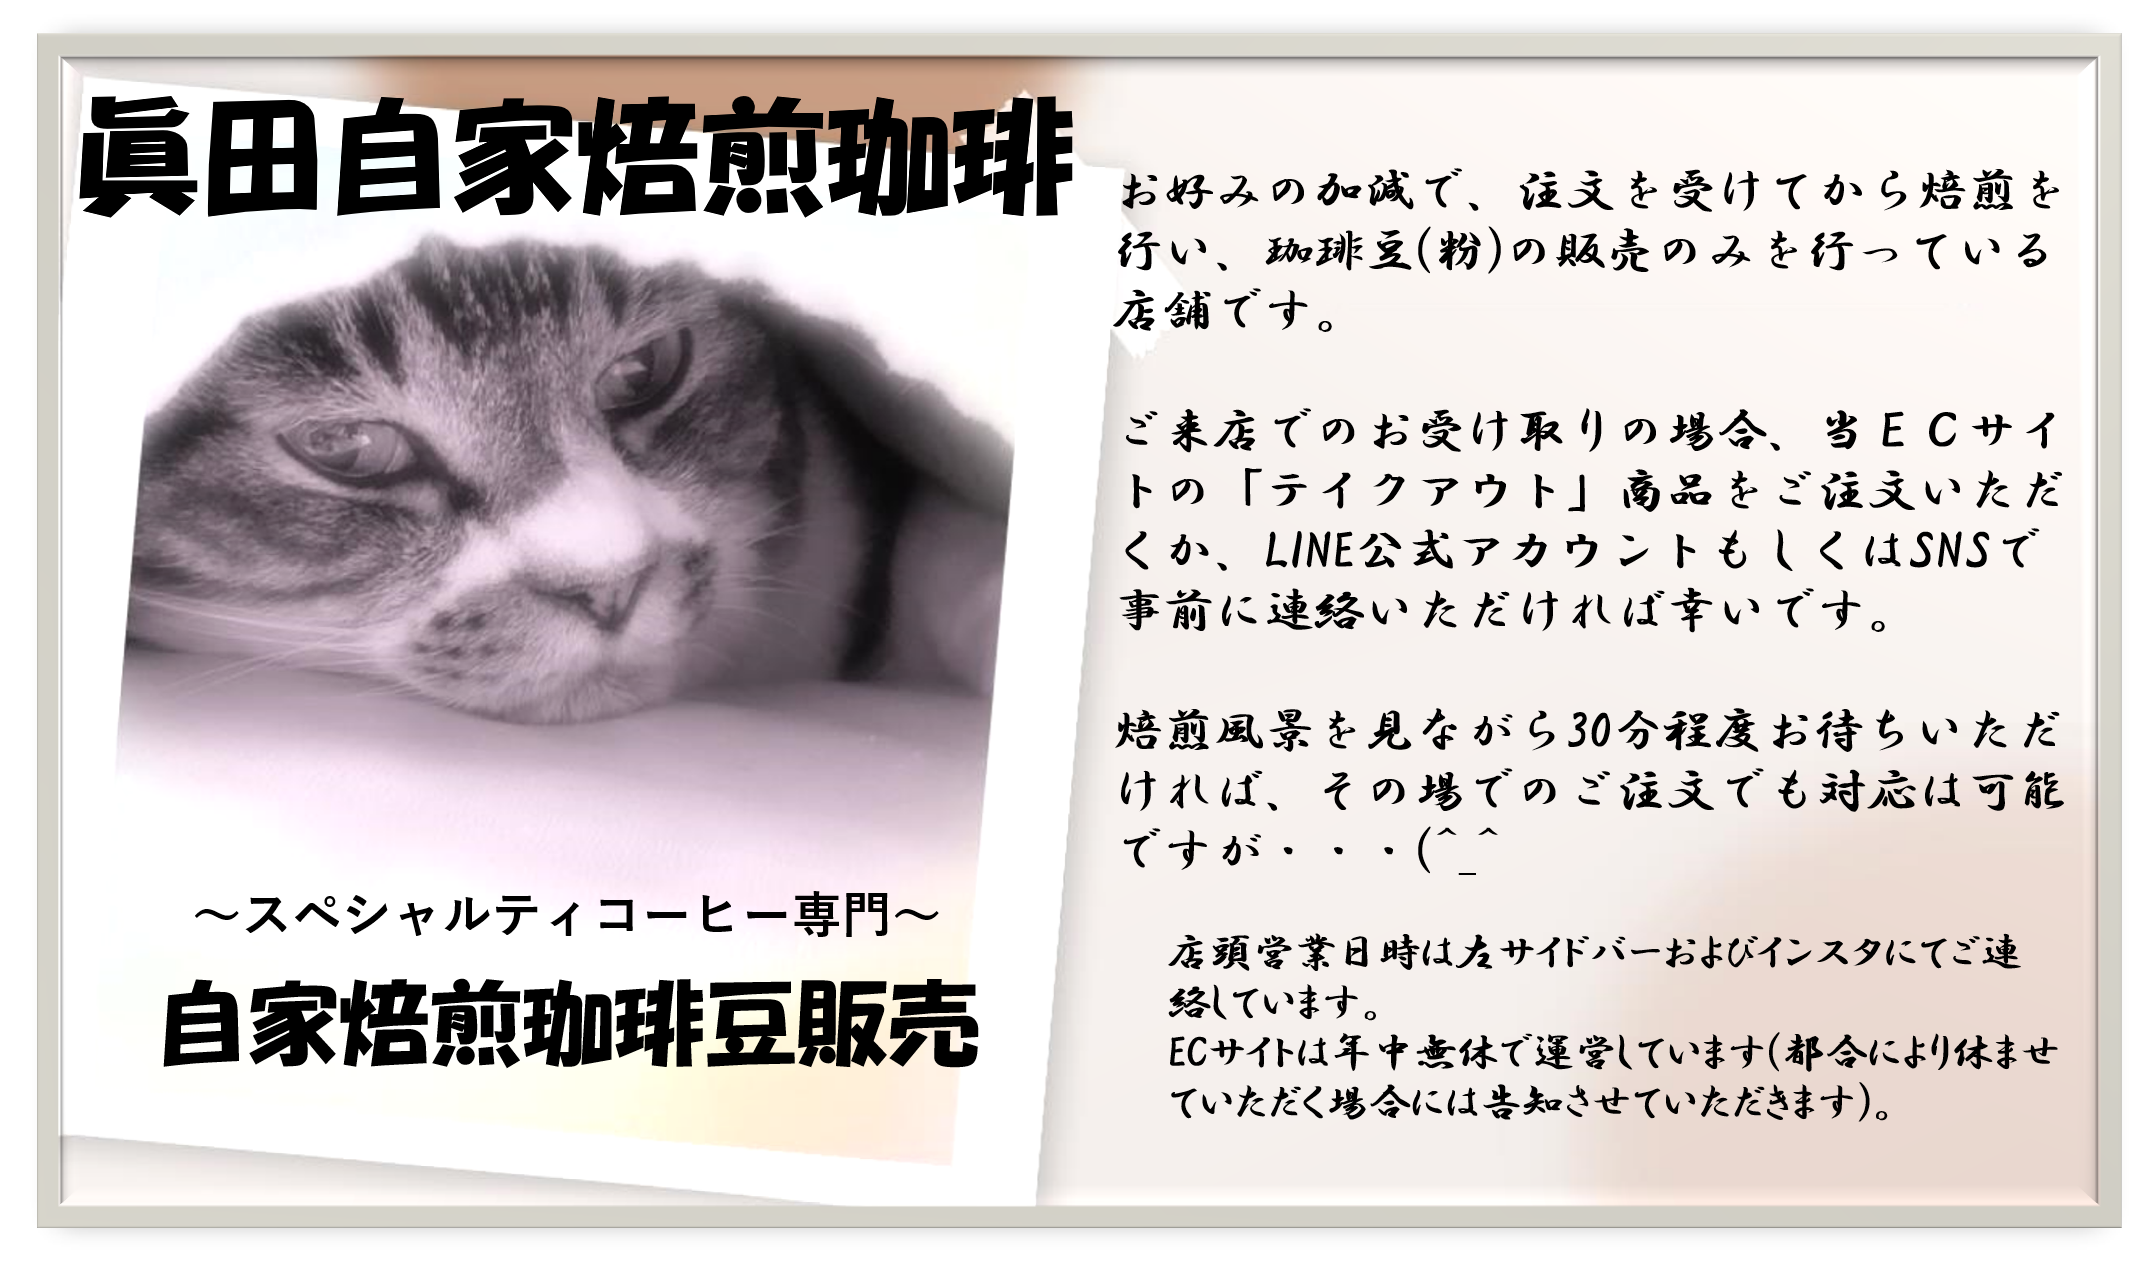 眞田自家焙煎珈琲
～スペシャルティコーヒー専門～
自家焙煎珈琲豆販売
お好みの加減で、注文を受けてから焙煎を
行い、珈琲豆(粉)の販売のみを行っている
店舗です。
ご来店でのお受け取りの場合、当ＥＣサイ
トの「テイクアウト」商品をご注文いただ
くか、LINE公式アカウントもしくはSNSで
事前に連絡いただければ幸いです。
焙煎風景を見ながら30分程度お待ちいただ
ければ、その場でのご注文でも対応は可能
ですが・・・(^_^
店頭営業日時は左サイドバーおよびインスタにてご連
絡しています。
ECサイトは年中無休で運営しています(都合により休ませ
ていただく場合には告知させていただきます)。